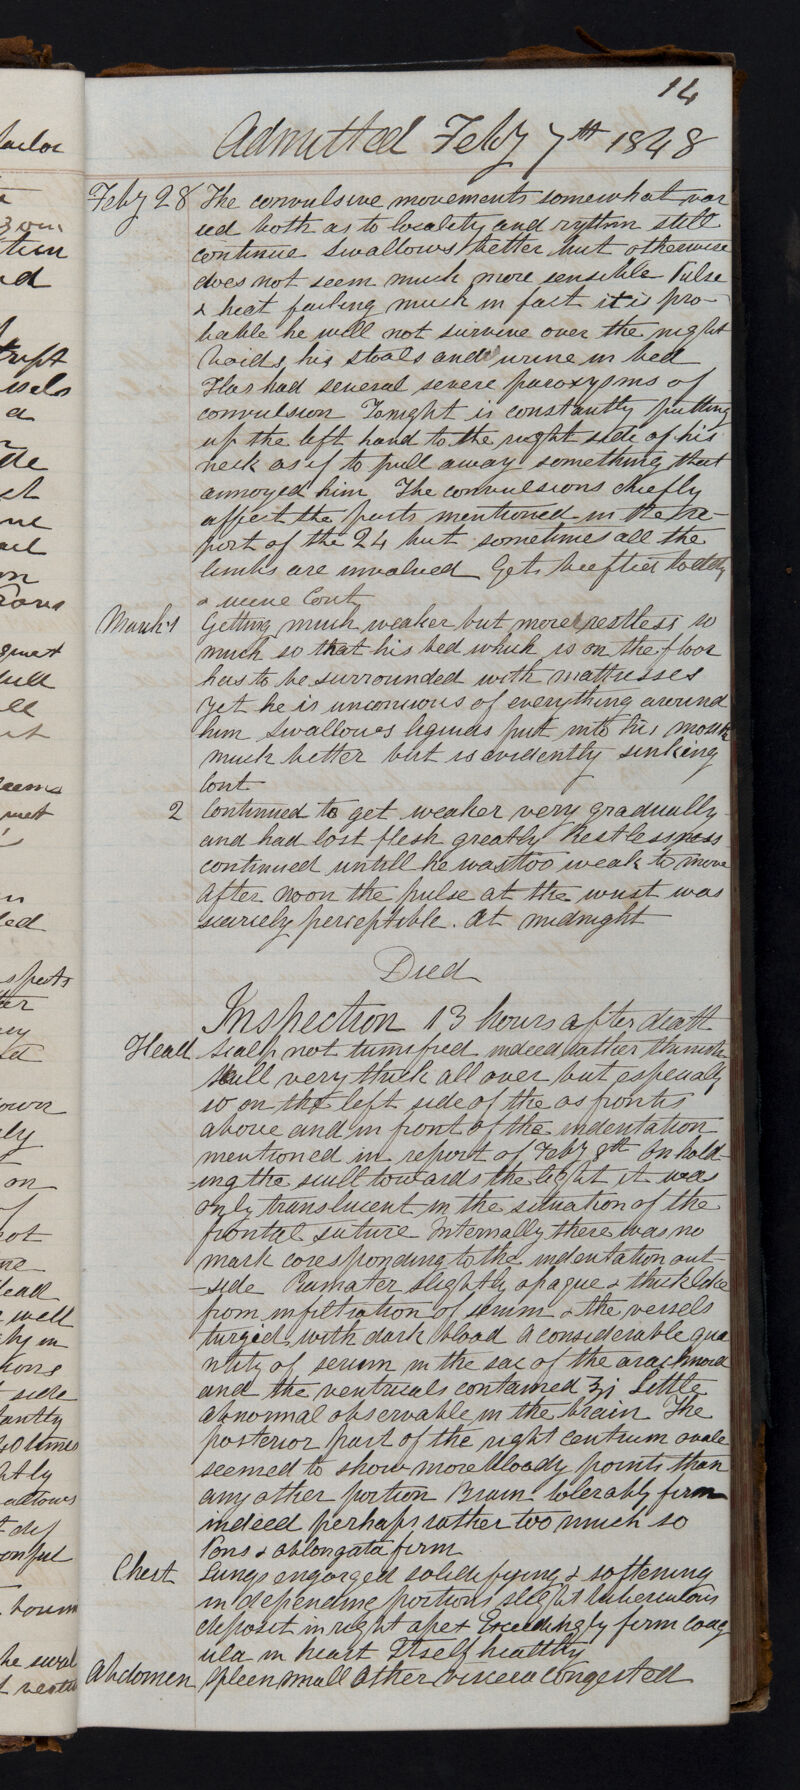 14
Admitted Feby 7th 1848
Feby 28 The convulsive movements somewhat var
ied both as to locality and rythm still
continue Swallows better but otherwise
does not seem much more sensible Pulse
& heat failing much in fact it is pro-
bable he will not survive over the night
Voids his stools and urine in bed
Has had several severe paroxysms of
convulsion Tonight is constantly putting
up the left hand to the right side of his
neck as if to pull away something that
annoyed him The convulsions chiefly
affect the parts mentioned in the re-
port of the 24 but sometimes all the
limbs are involved Gets beeftea toddy
& wine Cont
March 1 Getting much weaker but more restless so
much so that his bed which is on the floor
has to be surrounded with mattresses
yet he is unconcious of everything around
him Swallows liquids put into his mouth
much better but is evidently sinking
Cont
2 Continued to get weaker very gradually
and had lost flesh greatly Restlessness
continued untill he was too weak to move
After noon the pulse at the wrist was
scarcely perceptible. At midnight
Died
Inspection 13 hours after death
Head Scalp not tumified indeed rather thinnish
Skull very thick all over but especially
so on the left side of the os frontis
above and in front of the indentation
mentioned in report of Feby 8th On hold
-ing the scull towards the light it was
only translucent in the situation of the
frontal suture Internally there was no
mark coresponding to the indentation out-
-side Piamater slightly opaque & thick like
from infiltration of serum & the vessels
turged with dark blood A considerable qua
ntity of serum in the sac of the arachnoid
and the ventricals contained ʒi Little
abnormal observable in the brain The
posterior part of the right centrum ovale
seemed to show more bloody points than
any other portion Brain tolerably firm
indeed perhaps rather too much so
Pons & oblongata firm
Chest Lungs engorged solidifying & softening
in depending portions slight tuberculous
deposit in right apex Exceedingly firm coag
ula in heart Itself healthy
Abdomen Spleen small Other viscera congested